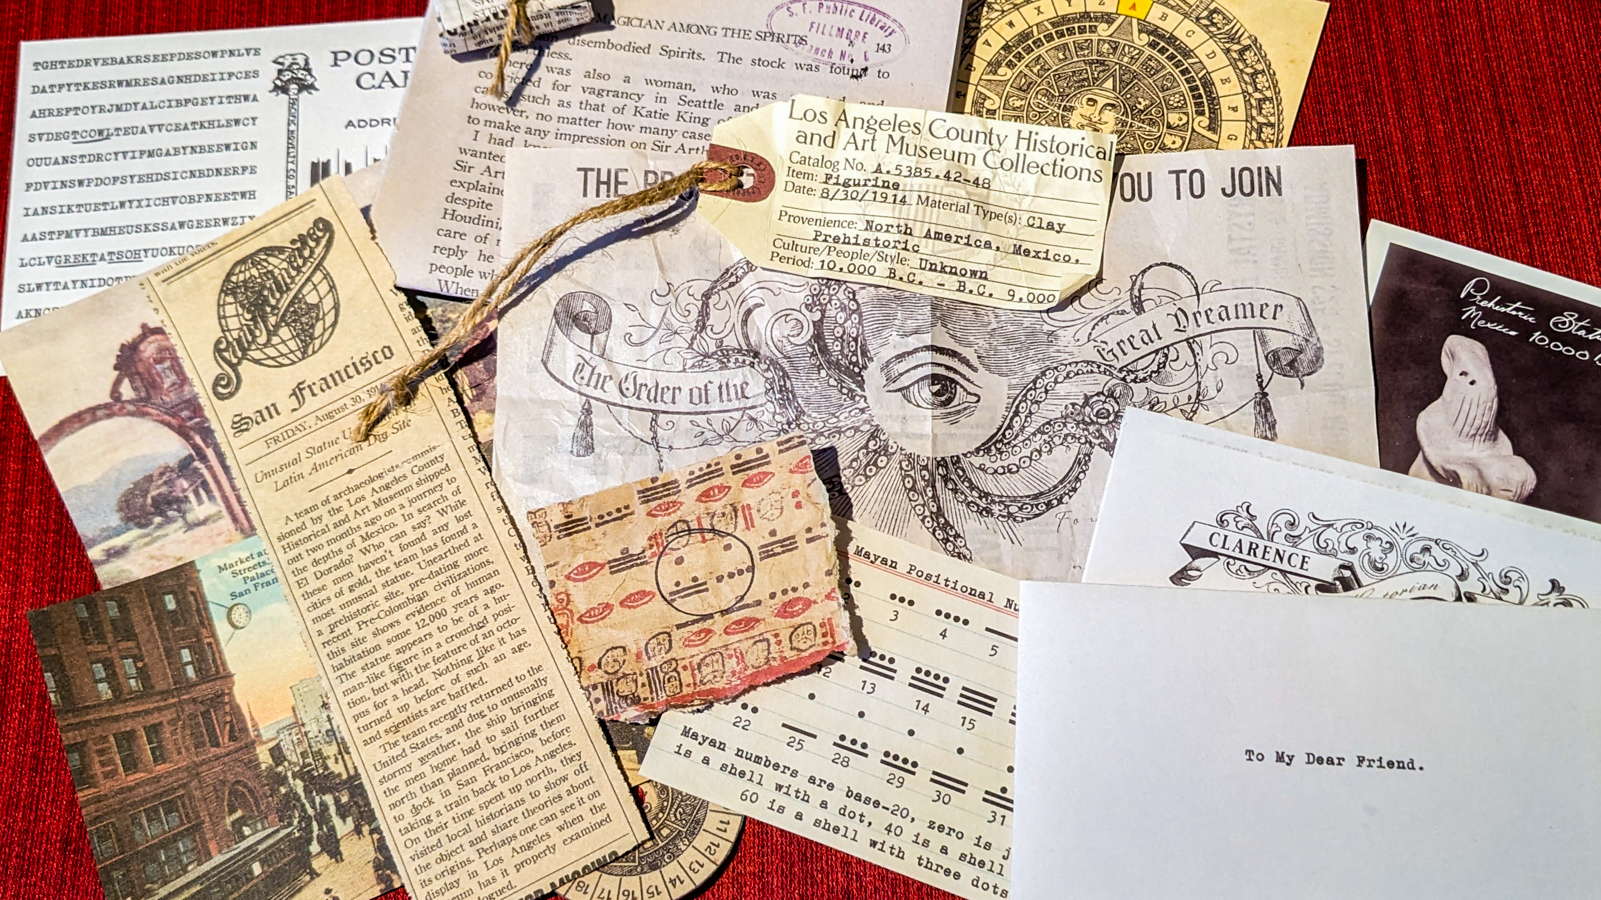 TGHTEDRVEBAKRSEEPDESOWPNLVE
DATFYTKESRWMRESAGNHDEIIPCES
AHREPTOYRJMDYALCIBFGEYITHWA
SVDEGTCOWLTEUAVVCEATKHLEWCY
OUUANSTDRCYVIFMGABYNBEEWIGN
FDVINSWPDOFSYEHDSICNBDNERFE
IANSIKTUETLWYXICHVOBFNEETWH
AASTPMVYBMHEUSKSSAWGEERWZIY
LCLVGREKTATSOHYUOKUO
SLWYTAYNIDOT
POST
ADDR
MAGICIAN AMONG THE SPIRITS
143
S. F. Public Library
FILLMORE
Branch No. 6
disembodied Spirits. The stock was found to
less.
There was also a woman, who was
convicted for vagrancy in Seattle and
such as that of Katie King
however, no matter how many case
to make any impression on Sir Arth
I had
wanted
Sir Art
explaine
despite
Houdini,
care of
reply he
people wh
When
W X Y Z A B C D E F G
THE
YOU TO JOIN
The Order of the
Great Dreamer
Los Angeles County Historical
and Art Museum Collections
Catalog No. A.5385.42-48
Item: Figurine
Date: 8/30/1914 Material Type(s): Clay
Provenience: North America, Mexico,
Prehistoric
Culture/People/Style: Unknown
Period: 10,000 B.C. - B.C. 9,000
Prehistoric
Mexico 10.000
with the voters.
San Francisco
FRIDAY, August 30, 19
Unusual Statue
Latin American Dig Site
A team of archaeologists commis-
sioned by the Los Angeles County
Historical and Art Museum shipped
out two months ago on a journey to
the depths of Mexico. In search of
El Dorado? Who can say? While
these men haven't found any lost
cities of gold, the team has found a
most unusual statue. Unearthed at
a prehistoric site, pre-dating more
recent Pre-Colombian civilizations,
this site shows evidence of human
habitation some 12,000 years ago.
The statue appears to be of a hu-
man-like figure in a crouched posi-
tion, but with the feature of an octo-
pus for a head. Nothing like it has
turned up before of such an age,
and scientists are baffled.
The team recently returned to the
United States, and due to unusually
stormy weather, the ship bringing
the men home had to sail further
north than planned, bringing them
to dock in San Francisco, before
taking a train back to Los Angeles.
On their time spent up north, they
visited local historians to show off
the object and share theories about
its origins. Perhaps one can see it on
display in Los Angeles when the
museum has it properly examined
Market
Streets,
Palace
San Fran
Mayan Positional Nu
3 4 5
12 13 14 15
22 25 28 29 30 31
Mayan numbers are base-20, zero is
is a shell with a dot, 40 is a shell
60 is a shell with three dots
11 12 13 14 15 16 17 18
CLARENCE
To My Dear Friend.